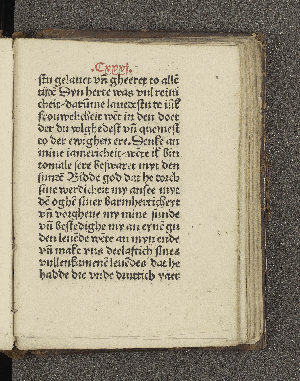 .Cxxxj.
stu gelauet vn̄ gheeret to allē
tijdē Dyn herte was vul reini
cheit
der du volghedest vn̄ quemest
to der ewighen ere. Denke an
mine iamericheit wēte ik bin
to male sere beswaret myt den
sundē Bidde god dat he doch
sine werdicheit my ansee myt
dē oghē siner barmherticheit
vn̄ vorgheue my mine sunde
vn̄ bestedighe my an eynē gu
den leuēde wēte an myn ende
vn̄ make my deelaftich sines
vullenkamenē leuēdes dat he
hadde die vnde druttich yaer